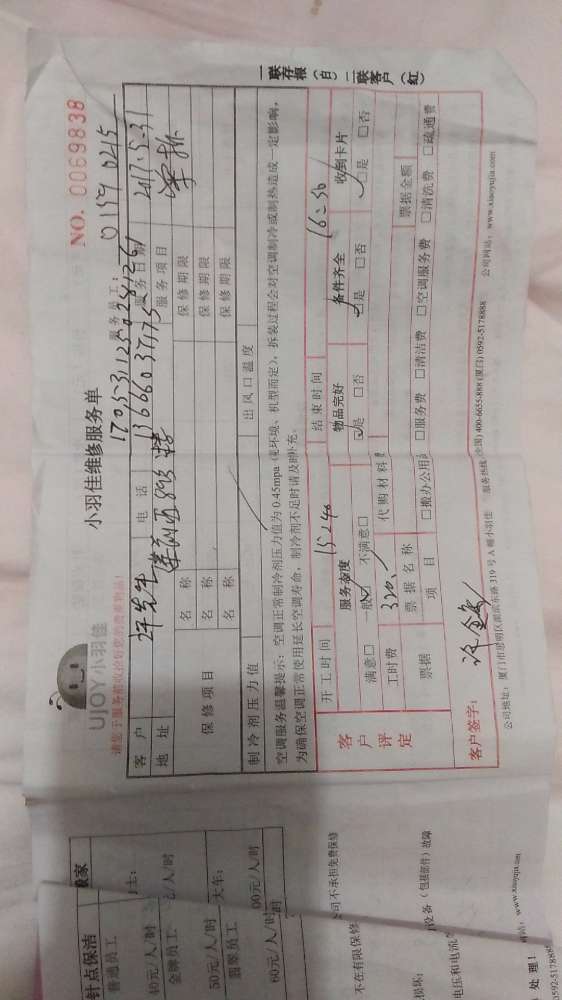 UJOY小羽佳
小羽佳维修服务单
NO. 0069838
请您于服务前收拾好您的贵重物品!
服务员工:
0159 0215
客户
电话
13666037775
服务日期
2017.5.31
地址
服务项目
保修项目
名称
保修期限
名称
保修期限
名称
保修期限
制冷剂压力值
出风口温度
空调服务温馨提示:空调正常制冷剂压力值为0.45mpa(视环境、机型而定),拆装过程会对空调制冷或制热造成一定影响,
为确保空调正常使用延长空调寿命,制冷剂不足时请及时补充。
客户评定
开工时间
15:40
结束时间
16:50
服务态度
物品完好
备件齐全
收到卡片
满意□ 一般□ 不满意□
□是 □否
□是 □否
□是 □否
工时费
320.
代购材料费
票据金额
票据
票据名称
项目
□搬办公用品
□服务费 □清洁费 □空调服务费 □清洗费 □疏通费
客户签字:
公司地址:厦门市思明区湖滨东路319号A幢小羽佳 服务热线:(全国) 400-6655-888 (厦门) 0592-5178888 公司网站:www.xiaoyujia.com
一联存根(白) 二联客户(红)
钟点保洁
搬家
普通员工
40元/人/时
金牌员工
元/人/时
50元/人/时
大车:
翡翠员工
00元/人/时
60元/人/时
公司不承担免费保修
不在有限保修
设备(包括部件)故障
电压和电流
处理!
www.xiaoyujia.com
0592-5178888